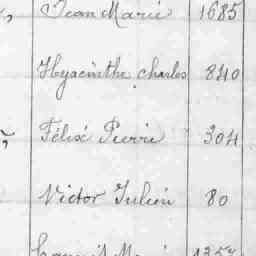 Jean Marie 1685
Hyacinthe charles 840
Félix Pierre 304
Victor Julien 80